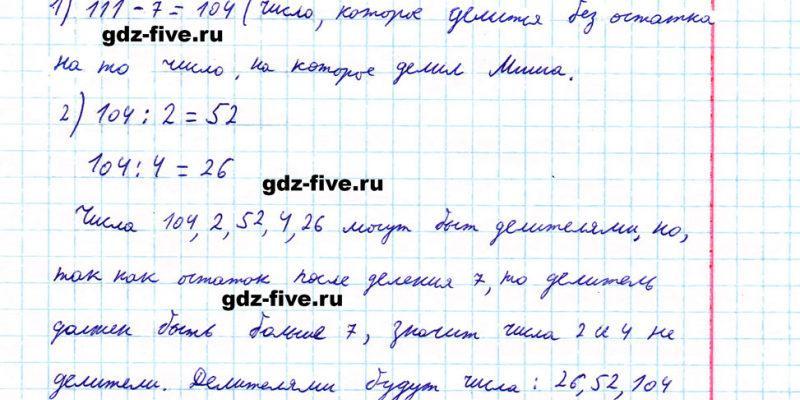 1) 111 - 7 = 104 (число, которое делится без остатка
gdz-five.ru
на то число, на которое делил Миша.
2) 104 : 2 = 52
104 : 4 = 26
gdz-five.ru
Числа 104, 2, 52, 4, 26 могут быт делителями, но,
так как остаток после деления 7, то делитель
gdz-five.ru
должен быть больше 7, значит числа 2 и 4 не
делители. Делителями будут числа : 26, 52, 104